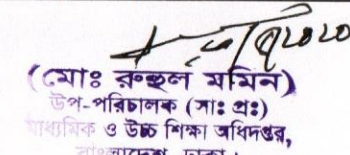 (মোঃ রুহুল মমিন)
উপ-পরিচালক (সাঃ প্রঃ)
মাধ্যমিক ও উচ্চ শিক্ষা অধিদপ্তর,
বাংলাদেশ, ঢাকা।